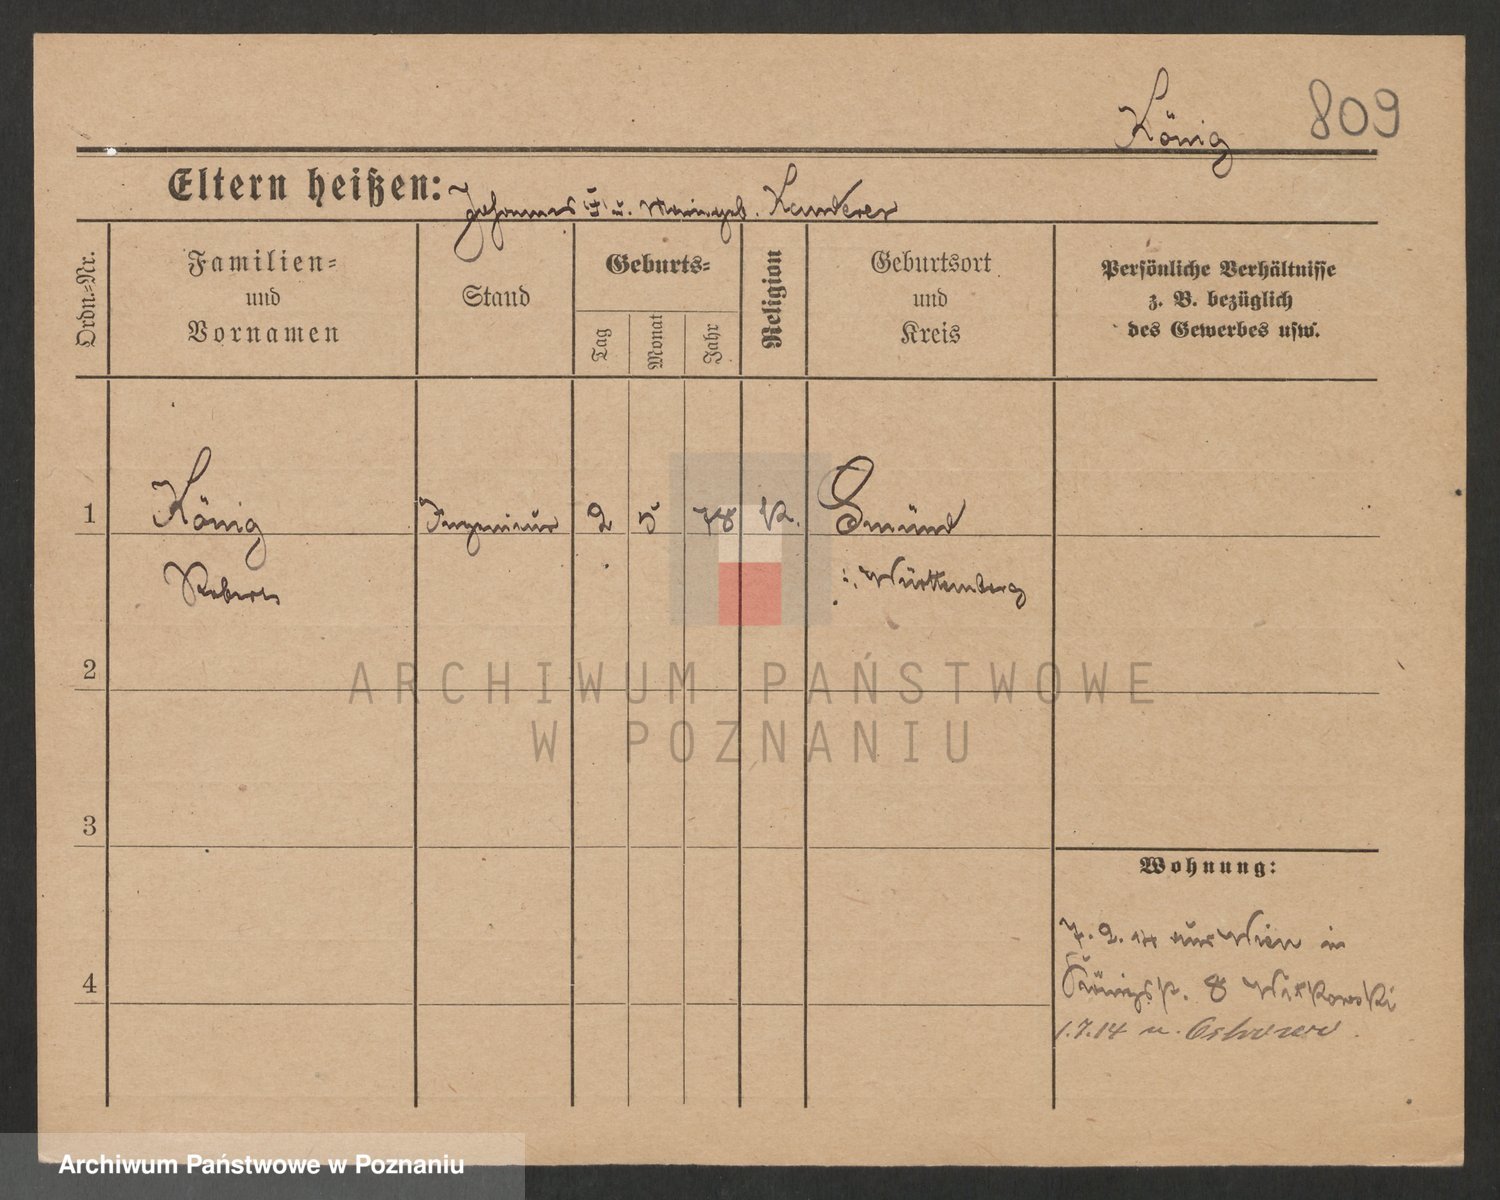 König 809
Eltern heißen: Johannes u. Maria geb. Kanderer
Ordn.-Nr.
Familien-
und
Vornamen
Stand
Geburts-
Tag
Monat
Jahr
Religion
Geburtsort
und
Kreis
Persönliche Verhältnisse
z. B. bezüglich
des Gewerbes usw.
1 König Ingenieur 2 5 78 K. Gmünd
Robert i. Württemberg
2
3
4
Wohnung:
7. 2. 14 aus Wien in
Königspl. 8 Witkowski
1.7.14 n. Ostrowo
ARCHIWUM PAŃSTWOWE
W POZNANIU
Archiwum Państwowe w Poznaniu